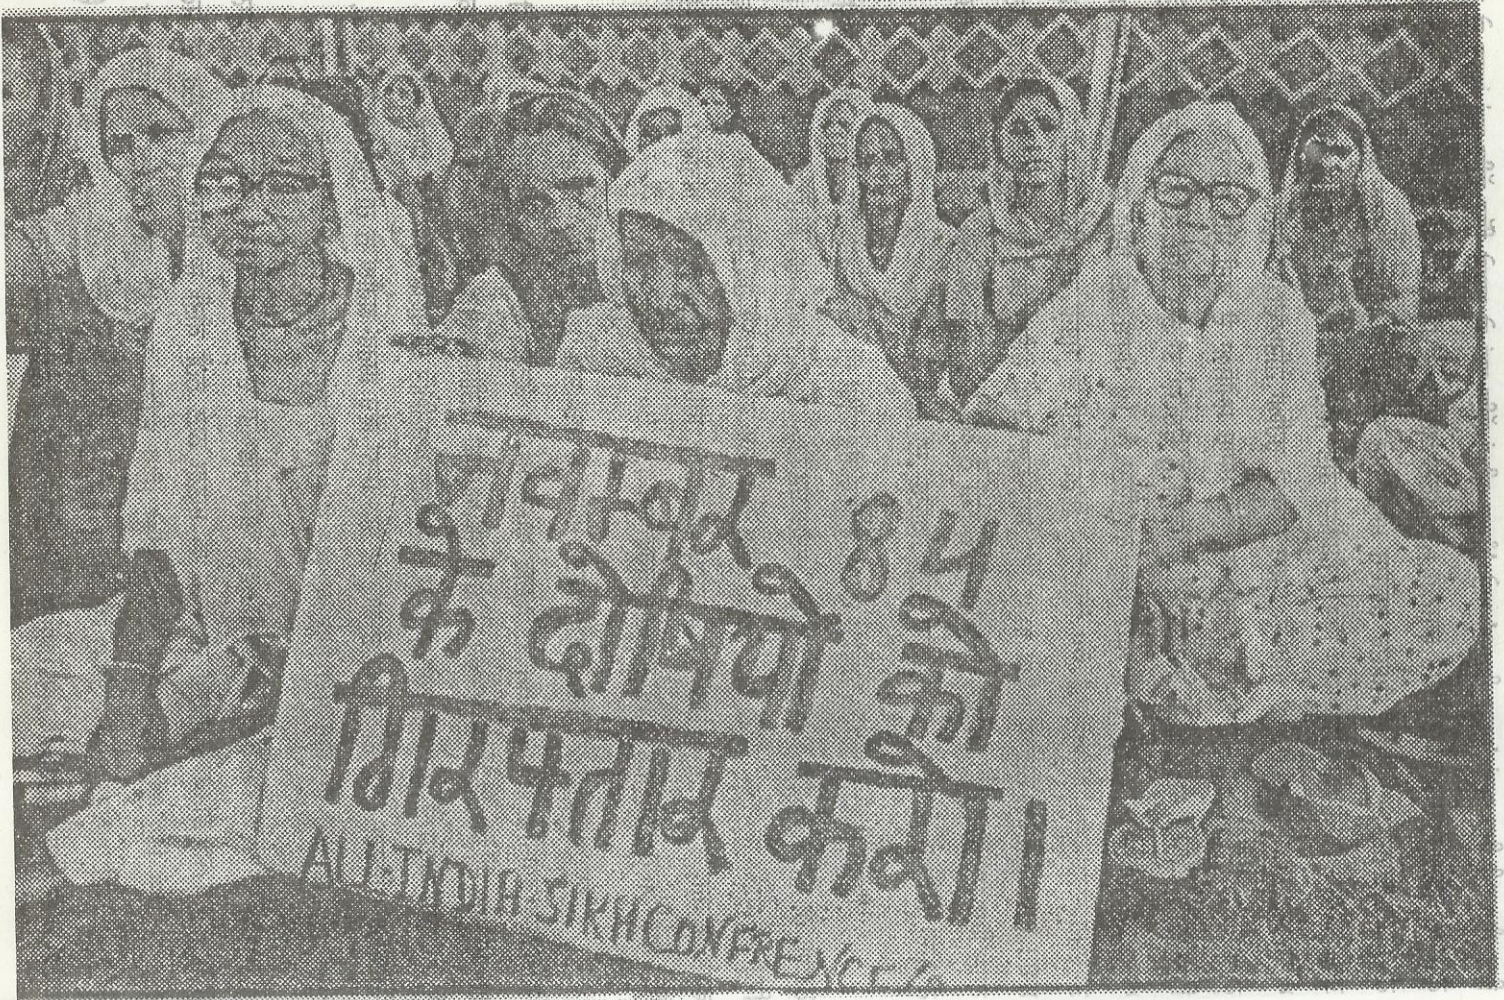 नवम्बर 84
के दोषियों को
गिरफतार करो।
ALL-INDIA-SIKH CONFRENCE